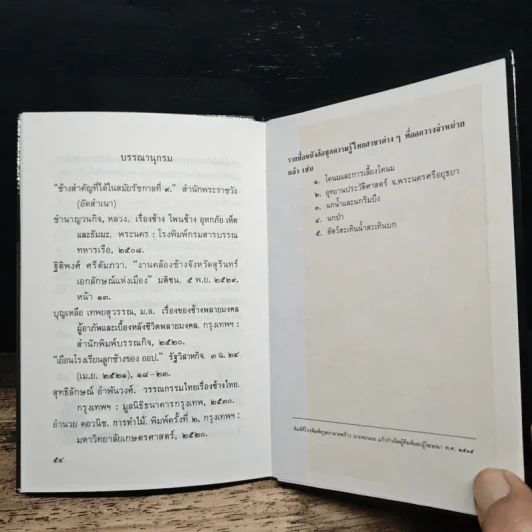 บรรณานุกรม
"ช้างสำคัญที่ได้ในสมัยรัชกาลที่ ๙." สำนักพระราชวัง
(อัดสำเนา)
ชำนาญวนกิจ, หลวง. เรื่องช้าง โพนช้าง อุทกภัย เห็ด
และธัมมะ. พระนคร : โรงพิมพ์กรมสารบรรณ
ทหารเรือ, ๒๕๐๘.
ฐิติพงศ์ ศรีตัมภวา. "งานคล้องช้างจังหวัดสุรินทร์
เอกลักษณ์แห่งเมือง" มติชน. ๕ พ.ย. ๒๕๒๙,
หน้า ๑๓.
บุญเหลือ เทพยสุวรรณ, ม.ล. เรื่องของช้างพลายมงคล
ผู้อาภัพและเบื้องหลังชีวิตพลายมงคล. กรุงเทพฯ :
สำนักพิมพ์บรรณกิจ, ๒๕๒๐.
"เยือนโรงเรียนลูกช้างของ ออป." รัฐวิสาหกิจ. ๓ ฉ. ๒๔
(เม.ย. ๒๕๒๑), ๑๘-๒๓.
สุทธิลักษณ์ อำพันวงศ์. วรรณกรรมไทยเรื่องช้างไทย.
กรุงเทพฯ : มูลนิธิธนาคารกรุงเทพ, ๒๕๓๐.
อำนวย คอวนิช. การทำไม้. พิมพ์ครั้งที่ ๒, กรุงเทพฯ :
มหาวิทยาลัยเกษตรศาสตร์, ๒๕๒๐.
๕๔
รายชื่อหนังสือชุดความรู้ไทยสาขาต่าง ๆ ที่ออกวางจำหน่าย
แล้ว เช่น
๑. โคนมและการเลี้ยงโคนม
๒. อุทยานประวัติศาสตร์ จ.พระนครศรีอยุธยา
๓. นกน้ำและนกริมบึง
๔. นกป่า
๕. สัตว์สะเทินน้ำสะเทินบก
พิมพ์ที่โรงพิมพ์คุรุสภาลาดพร้าว